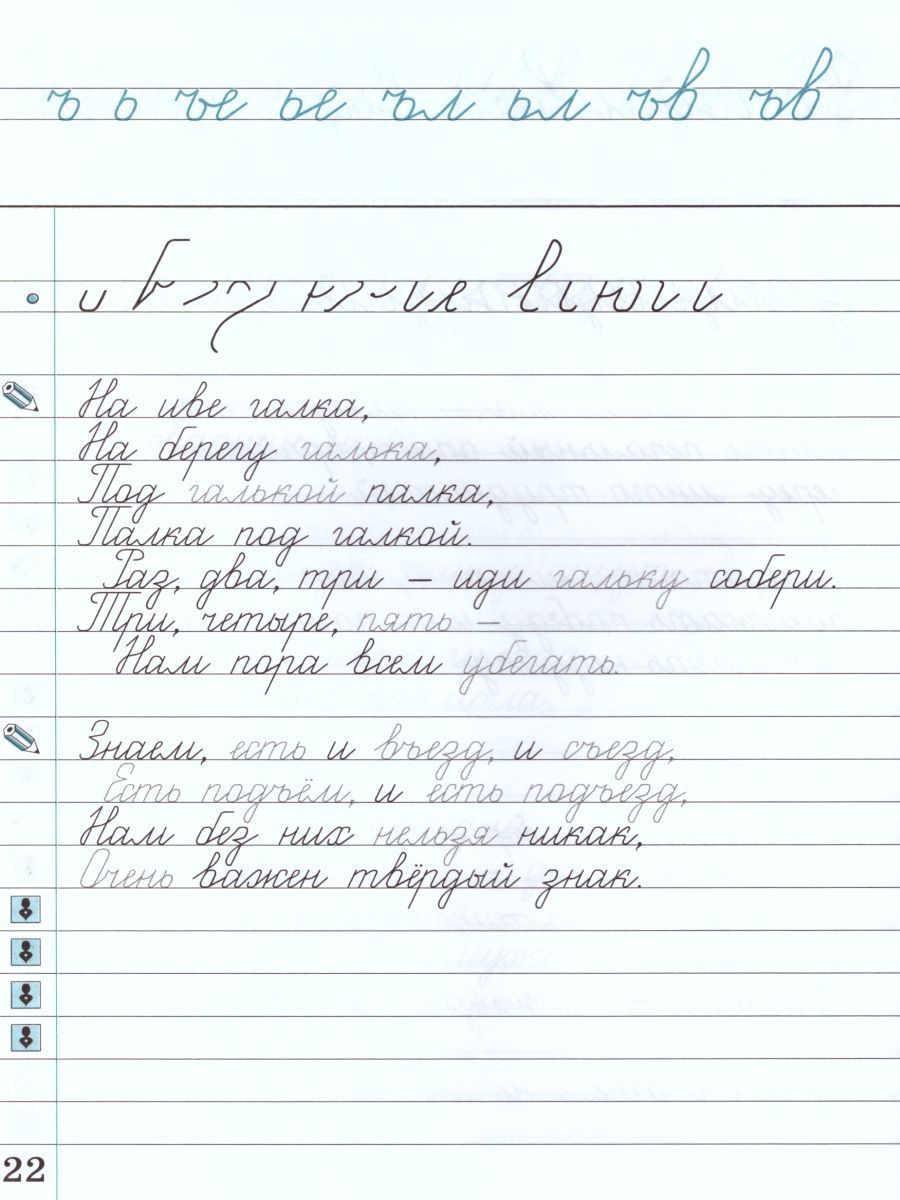 ъ ь ъе ье ъл ьл ъв ъв
На иве галка,
На берегу галька,
Под галькой палка,
Палка под галкой.
Раз, два, три – иди гальку собери.
Три, четыре, пять –
Нам пора всем убегать.
Знаем, есть и въезд, и съезд,
Есть подъём, и есть подъезд,
Нам без них нельзя никак,
Очень важен твёрдый знак.
22